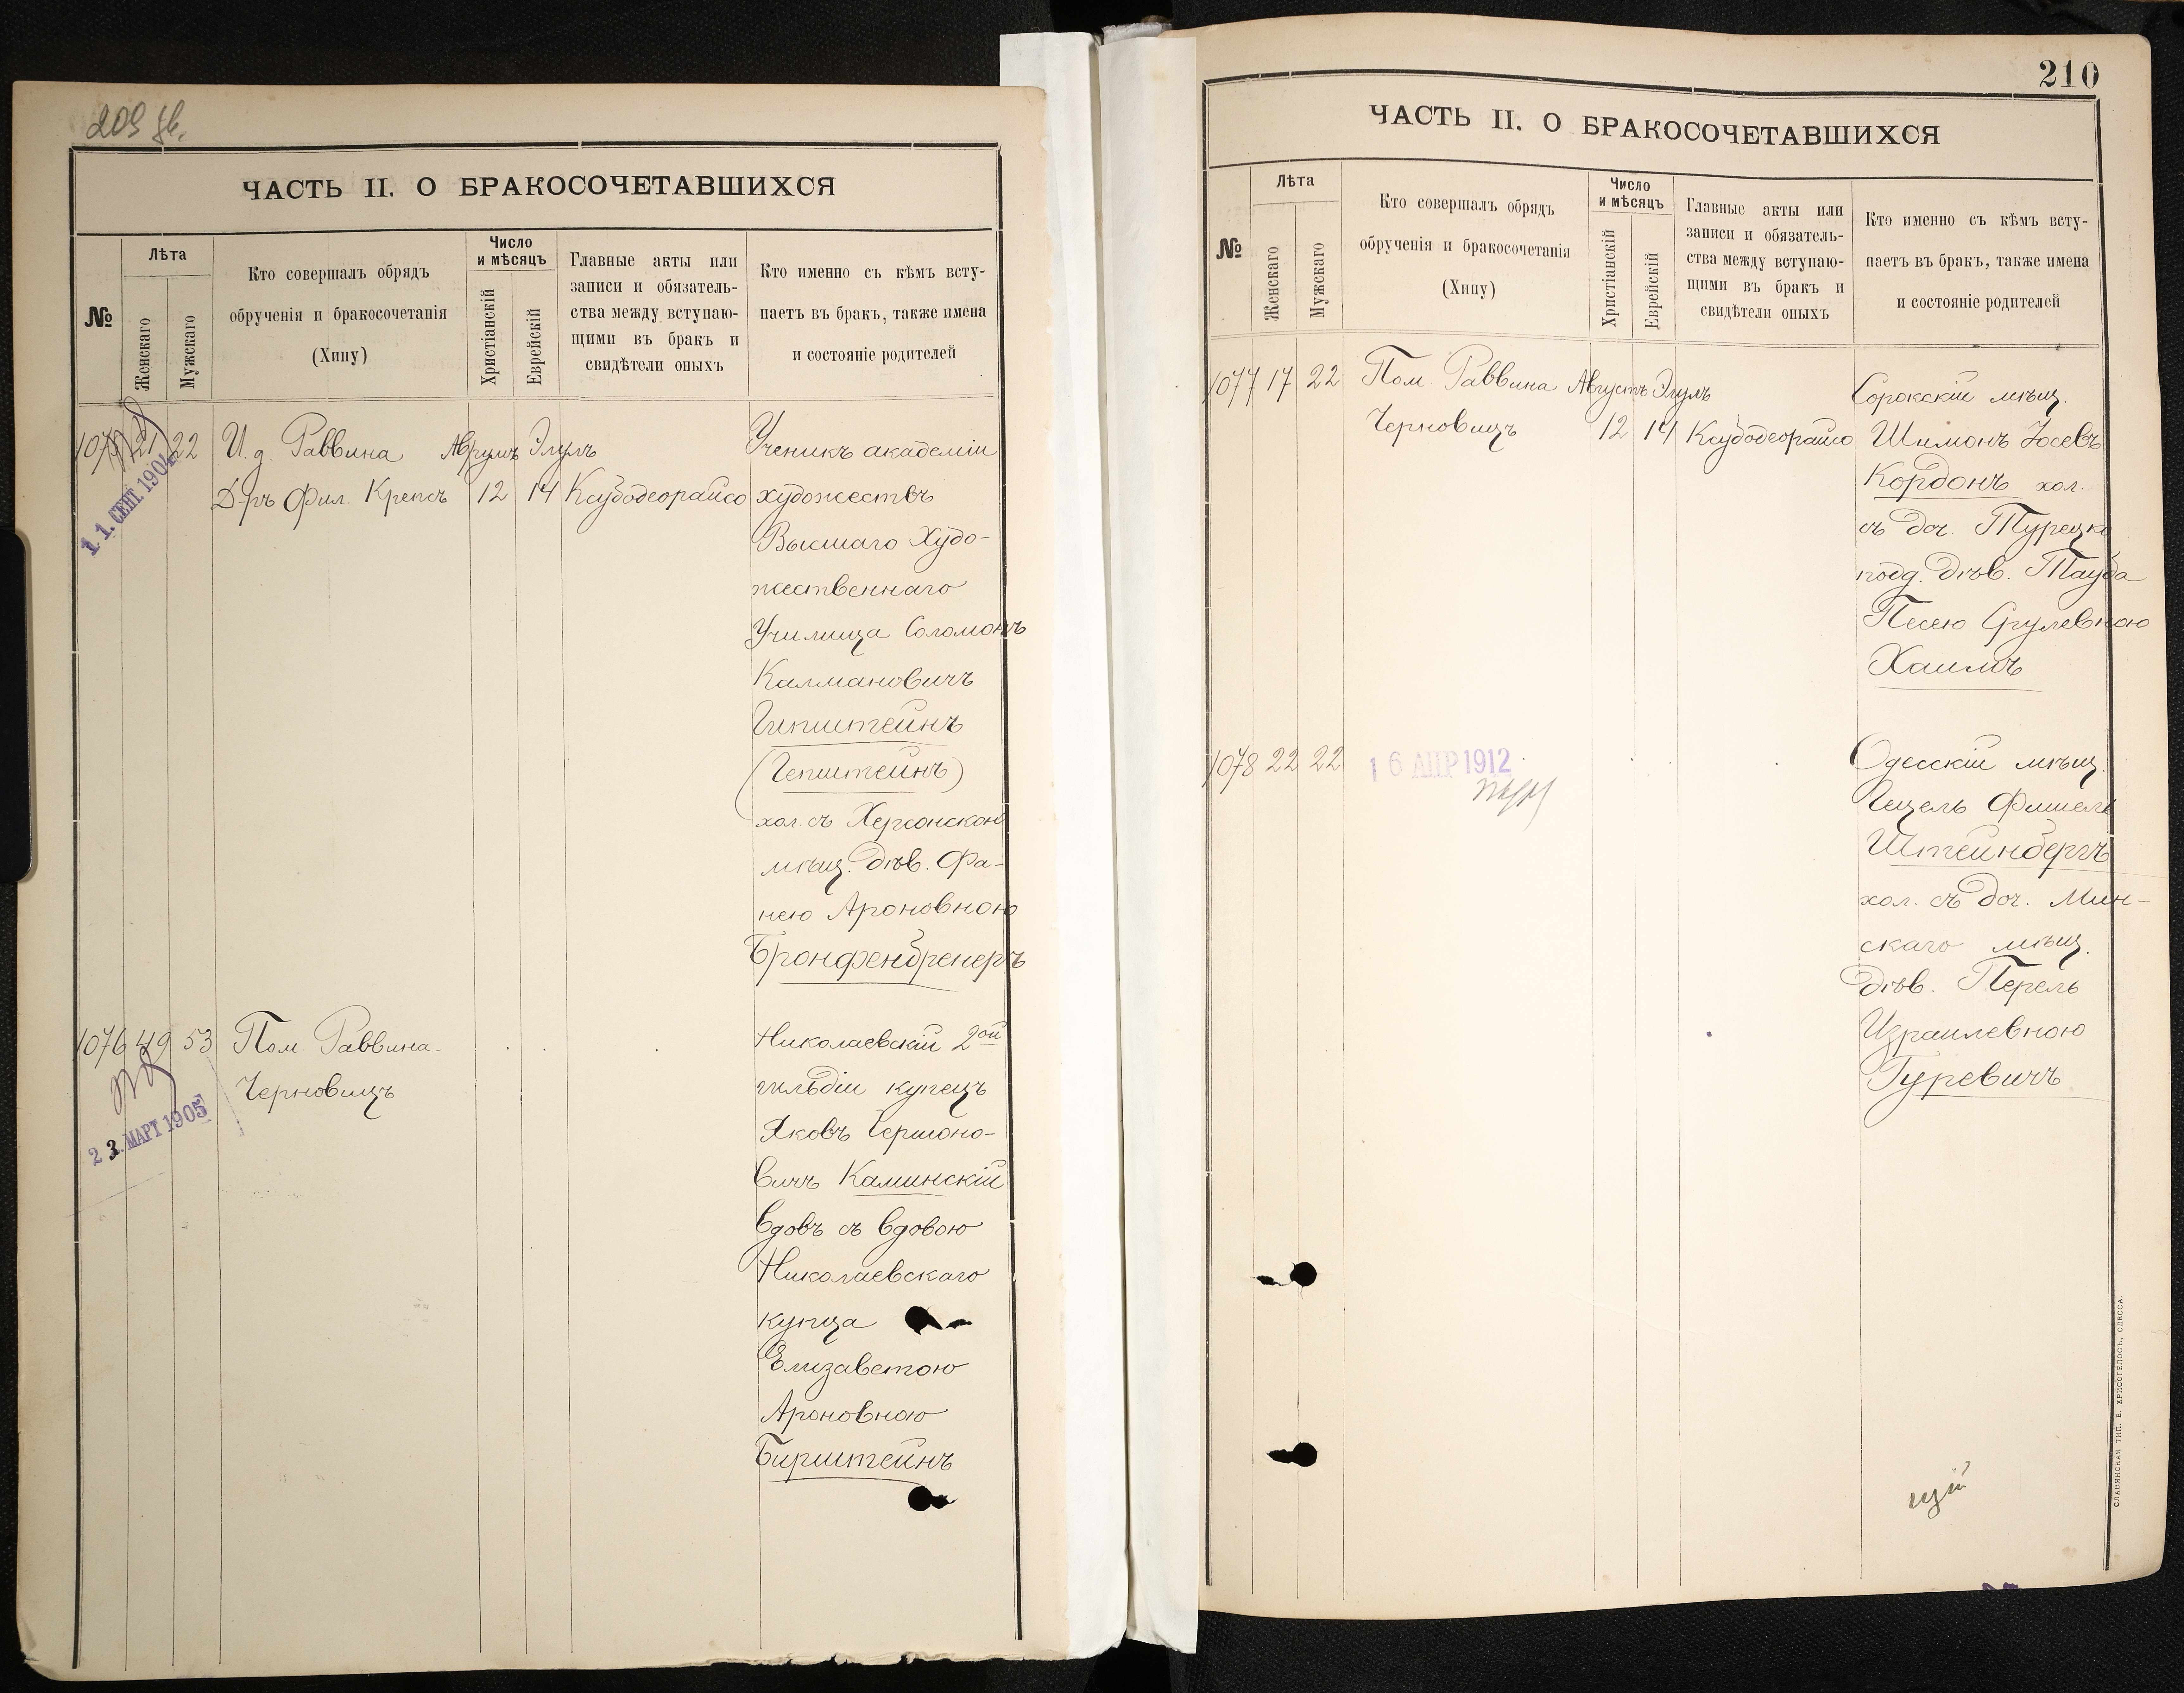 209 об.
ЧАСТЬ II. О БРАКОСОЧЕТАВШИХСЯ
№
Лѣта
Женскаго
Мужскаго
Кто совершалъ обрядъ
обрученія и бракосочетанія
(Хипу)
Число
и мѣсяцъ
Христіанскій
Еврейскій
Главные акты или
записи и обязатель-
ства между вступаю-
щими въ бракъ и
свидѣтели оныхъ
Кто именно съ кѣмъ всту-
паетъ въ бракъ, также имена
и состояніе родителей
1075 21 22 И. д. Раввина Августъ Элулъ Ученикъ академіи
Д-ръ Фил. Крепсъ 12 14 Ксубодеорайсо художествъ
11. СЕНТ. 1904
Высшаго Худо-
жественнаго
Училища Соломонъ
Калмановичъ
Гипштейнъ
(Гепштейнъ)
хол. съ Херсонской
мѣщ. дѣв. Фа-
нею Ароновною
Бронфенбренеръ
1076 49 53 Пом. Раввина Николаевскій 2ой
Черновицъ гильдіи купецъ
23. МАРТ 1905
Яковъ Гершоно-
вичъ Каминскій
вдовъ съ вдовою
Николаевскаго
купца
Елизаветою
Ароновною
Бирштейнъ
210
ЧАСТЬ II. О БРАКОСОЧЕТАВШИХСЯ
№
Лѣта
Женскаго
Мужскаго
Кто совершалъ обрядъ
обрученія и бракосочетанія
(Хипу)
Число
и мѣсяцъ
Христіанскій
Еврейскій
Главные акты или
записи и обязатель-
ства между вступаю-
щими въ бракъ и
свидѣтели оныхъ
Кто именно съ кѣмъ всту-
паетъ въ бракъ, также имена
и состояніе родителей
1077 17 22 Пом. Раввина Августъ Элулъ Сорокскій мѣщ.
Черновицъ 12 14 Ксубодеорайсо Шимонъ Іосевъ
Кордонъ хол.
съ доч. Турецко
подд. дѣв. Тауба
Песею Срулевною
Хаимъ
1078 22 22 16 АПР 1912 Одесскій мѣщ.
Гецель Фишель
Штейнбергъ
хол. съ доч. Мин-
скаго мѣщ.
дѣв. Перель
Израилевною
Гуревичъ
СЛАВЯНСКАЯ ТИП. Е. ХРИСОГЕЛОСЪ, ОДЕССА.